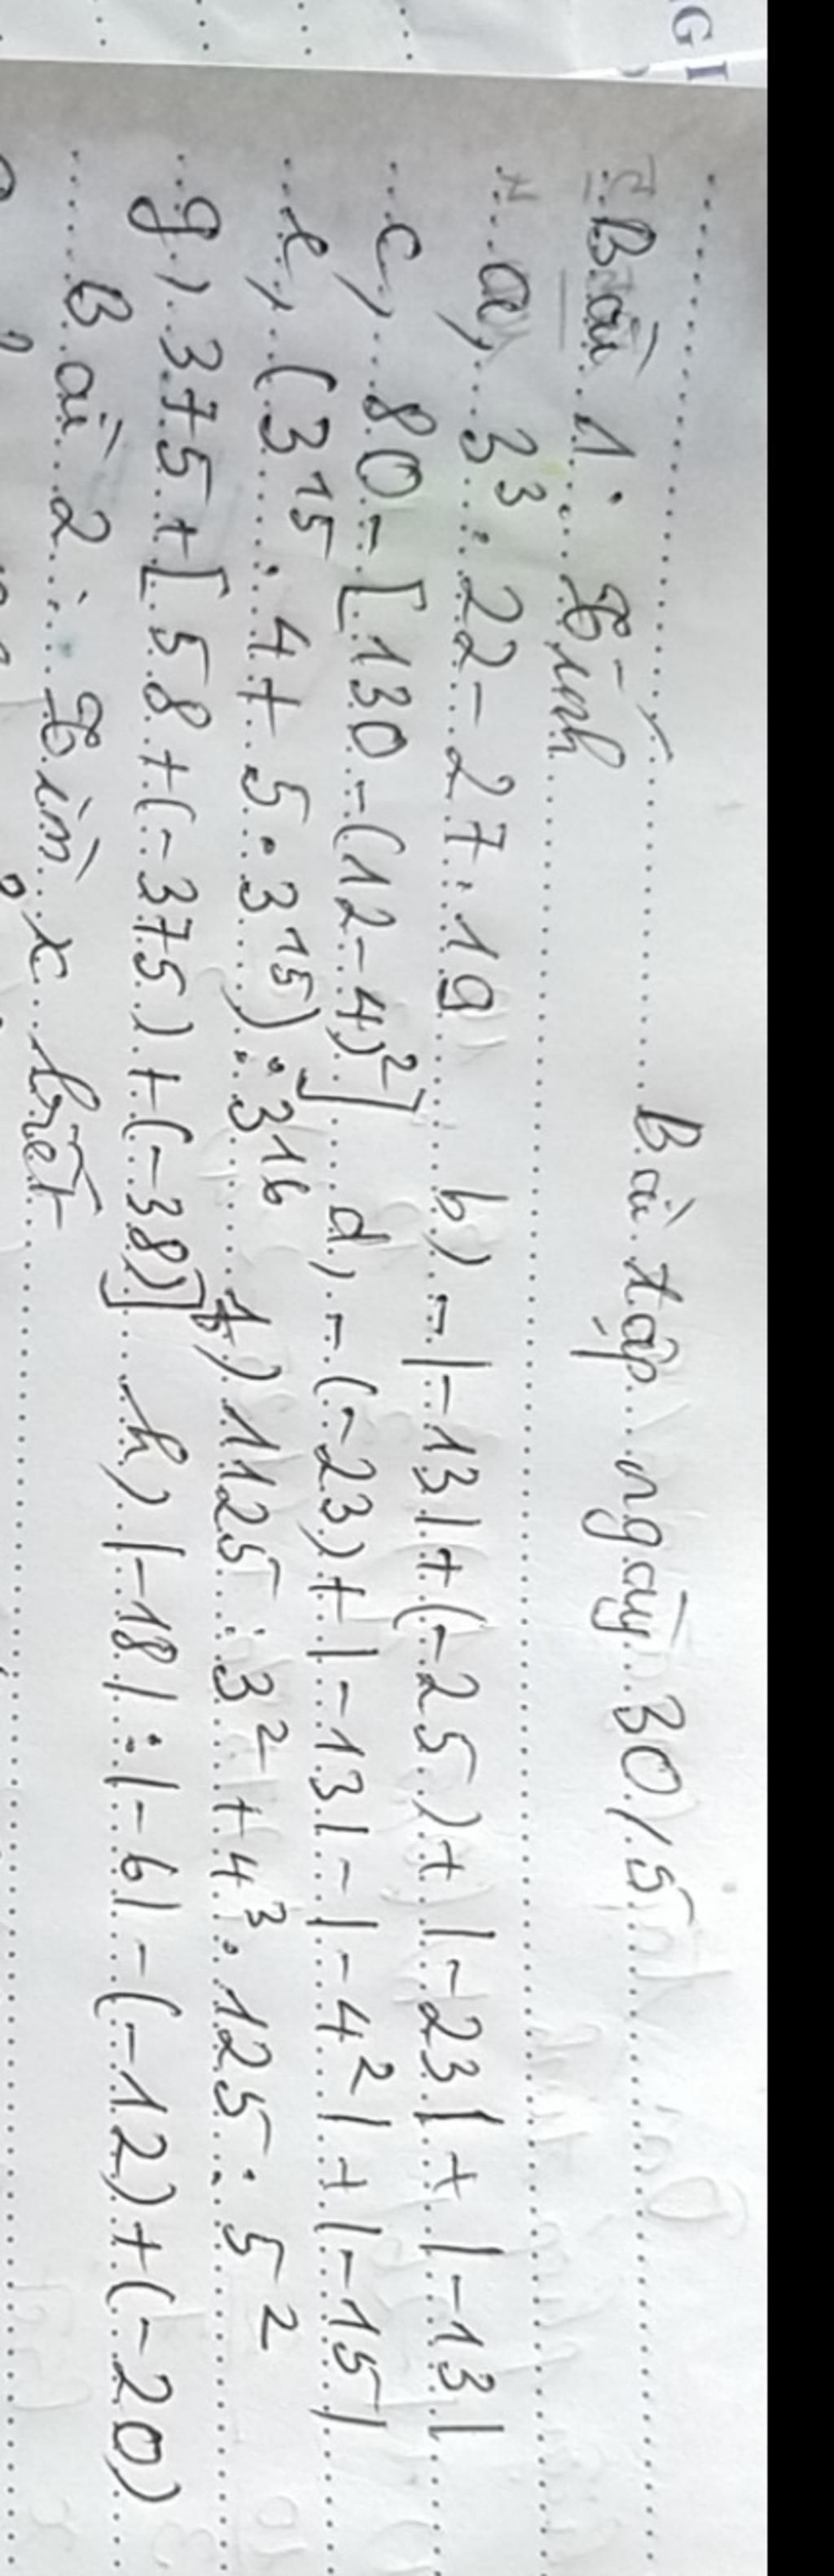 GI
Bài tập ngày 30/5
Bài 1: Tính
a, 3³.22-27.19 b) -|-13|+(-25)+|-23|+|-13|
c, 80-[130-(12-4)²] d, -(-23)+|-13|-|-4²|+|-15|
e, (3¹⁵.4+5.3¹⁵):3¹⁶ f) 1125:3²+4³.125:5²
g, 375+[58+(-375)+(-38)] h, |-18|:|-6|-(-12)+(-20)
Bài 2: Tìm x biết